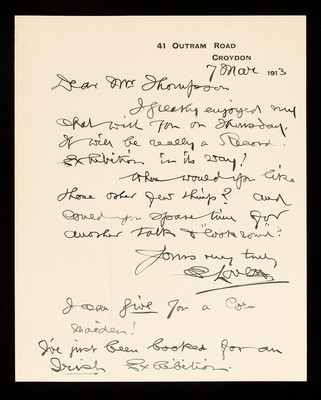 41 OUTRAM ROAD
CROYDON
7 Mar 1913
Dear Mr Thompson
I greatly enjoyed my
chat with you on Thursday.
It will be really a Record
Exhibition in its way!
When would you like
those other few things? and
could you spare time for
another talk & "look round"?
Yours very truly
E Lovett
I can give you a Corn
maiden!
I've just been booked for an
Irish Exhibition.